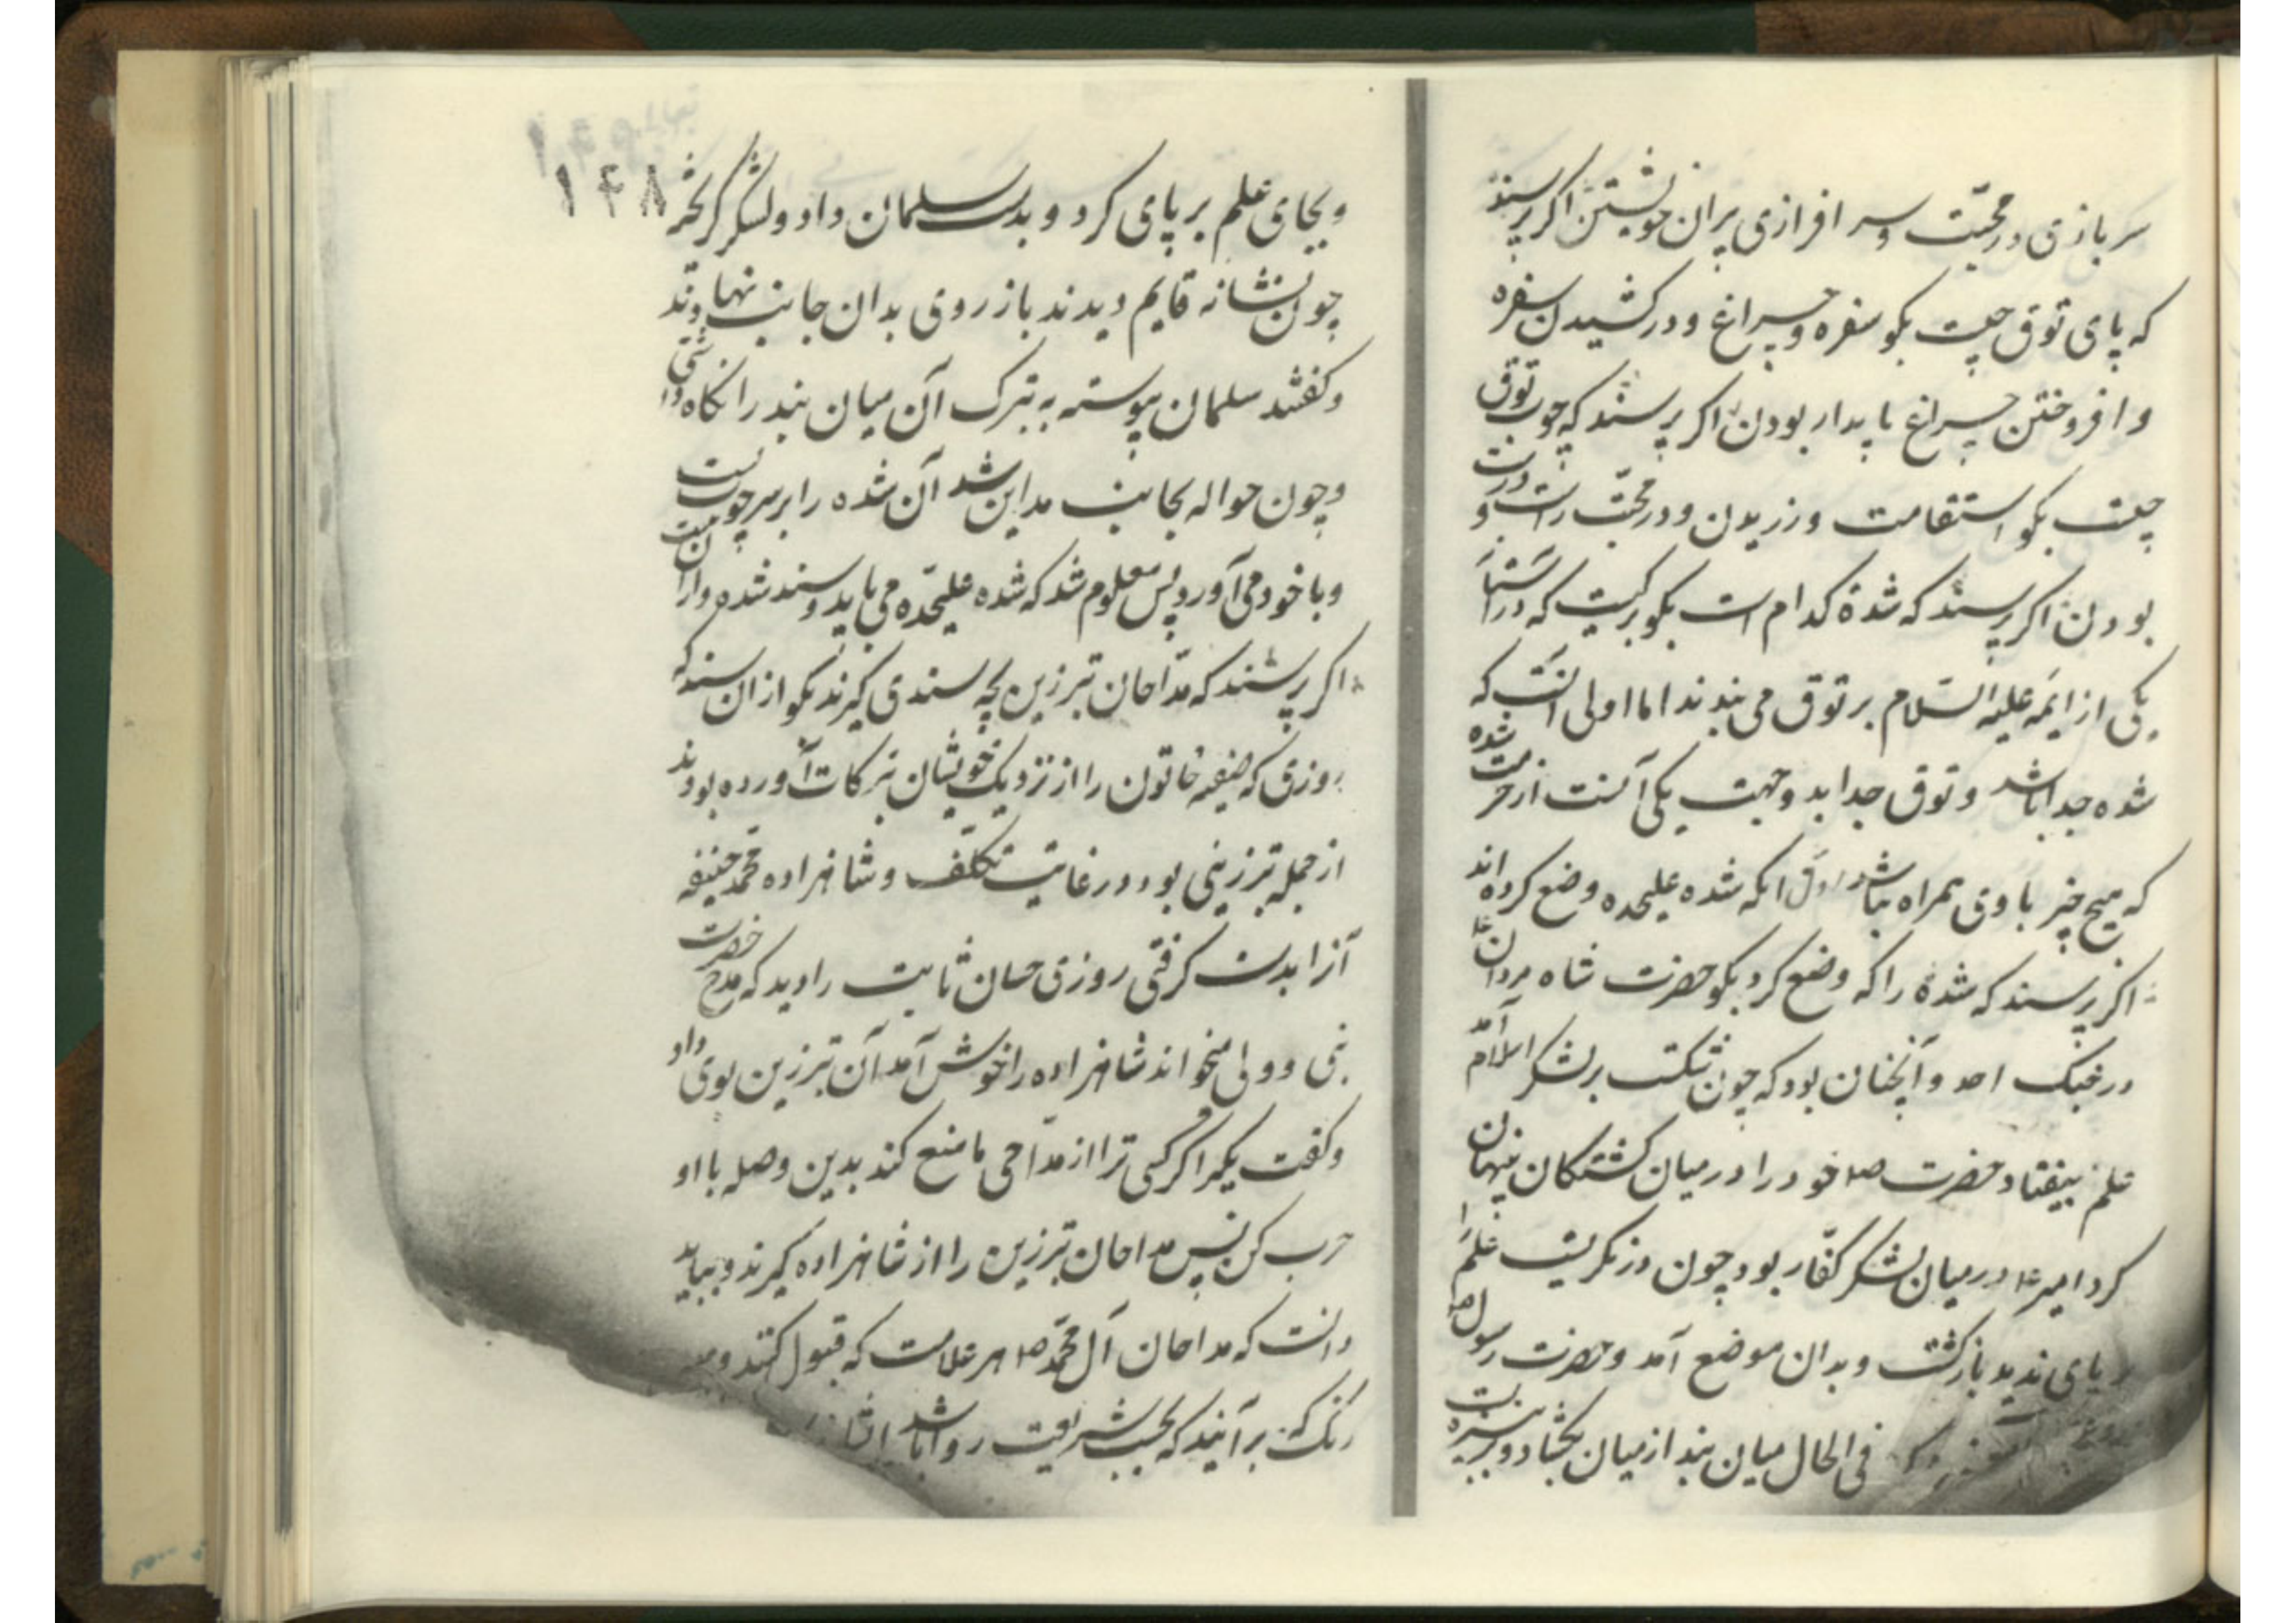 سربازی در محبت و سر افرازی بران خویشتن اکر پرسند
که پای توق چیست بکو سفره و چراغ و در کشیدن سفره
و افروختن چراغ پایدار بودن اکر پرسند که چوب توق
چیست بکو استقامت ورزیدن و در محبت راست و درست
بودن اکر پرسند که شده کدام است بکو برکیت که در آستانه
یکی از ایمه علیه السلام بر توق می بندند اما اولی آنست که
شده جدا باشد و توق جدا بد و جهت یکی آنست از حرمت شده
که هیچ چیز با وی همراه نباشد اول انکه شده علیحده وضع کرده اند
اکر پرسند که شده را که وضع کرد بکو حضرت شاه مردان ع
در جنک احد و آنچنان بود که چون شکست بر لشکر اسلام آمد
علم بیفتاد حضرت ص خود را در میان کشتکان پنهان
کرد امیر ع در میان لشکر کفار بود چون در نکریست علم را
بر پای ندید بازکشت و بدان موضع آمد و حضرت رسول ص
فی الحال میان بند از میان بکشاد و بر نیزه بست
۱۴۸
و بجای علم بر پای کرد و بدست سلمان داد و لشکر کریخته
چون نشانه قایم دیدند باز روی بدان جانب نهاوند
و کفتند سلمان پیوسته به تبرک آن میان بند را نکاه داشتی
و چون حواله بجانب مداین شد آن شده را بر سر چوب بست
و با خود می آورد پس معلوم شد که شده علیحده می باید و سند شده از آن منست
اکر پرسند که مداحان تبرزین بچه سندی کیرند بکو از ان سند که
روزی که حنیفه خاتون را از نزدیک خویشان تبرکات آورده بودند
از جمله تبرزینی بود در غایت تکلف و شاهزاده محمد حنیفه
آنرا بدست کرفتی روزی حسان ثابت را دید که مدح حضرت
نبی و ولی میخواند شاهزاده را خوش آمد آن تبرزین بوی داد
و کفت بکیر اکر کسی ترا از مداحی ما منع کند بدین وصله با او
حرب کن پس مداحان تبرزین را از شاهزاده کیرند و بباید
دانست که مداحان آل محمد ص هر علامت که قبول کنند و
رنک که بر آیند که بحسب شریعت روا باشد